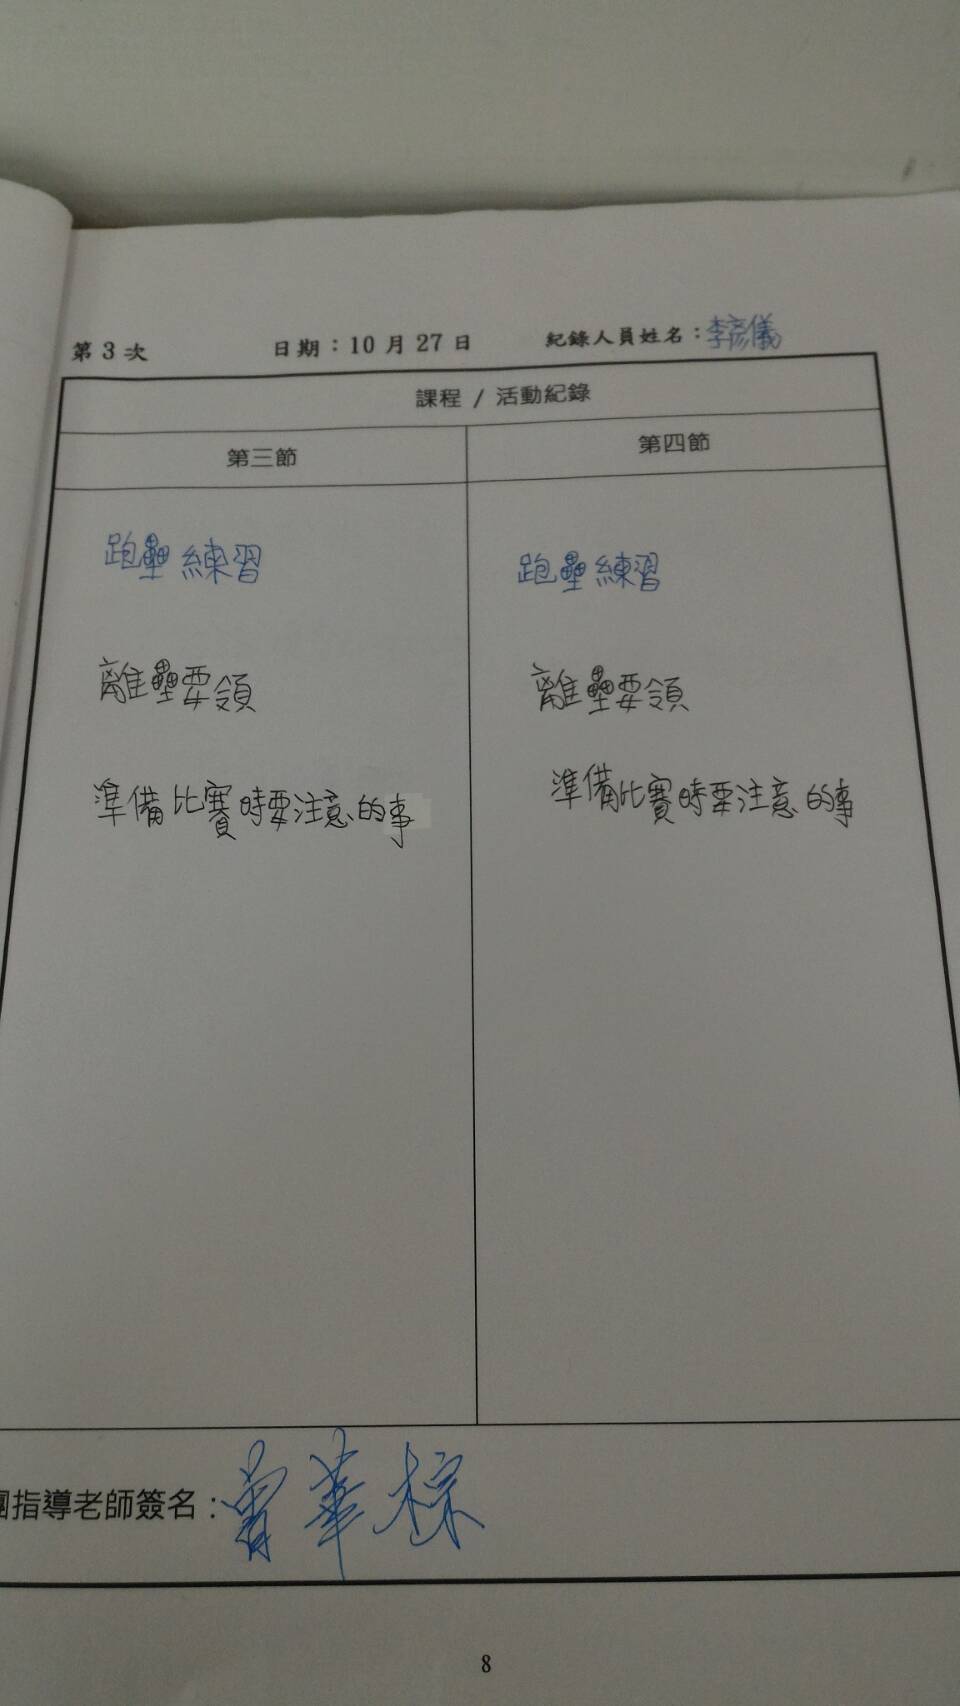 第 3 次 日期：10 月 27 日 紀錄人員姓名：李彥儀
課程 / 活動紀錄
第三節 第四節
跑壘練習 跑壘練習
離壘要領 離壘要領
準備比賽時要注意的事 準備比賽時要注意的事
團指導老師簽名：曾華棕
8